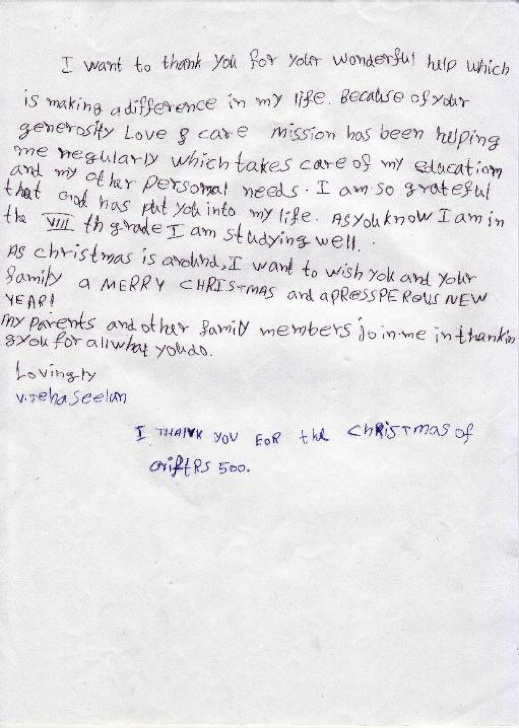 I want to thank you for your wonderful help which
is making a difference in my life. Because of your
generosity Love & care mission has been helping
me regularly which takes care of my education
and my other personal needs. I am so grateful
that God has put you into my life. As you know I am in
the VIII th grade I am studying well.
As christmas is around, I want to wish you and your
family a MERRY CHRISTMAS and a PRESSPEROUS NEW
YEAR!
my parents and other family members join me in thankin
g you for all what you do.
Lovingly
V. Jebaseelan
I THANK YOU FOR the CHRISTMAS of
Gift RS 500.